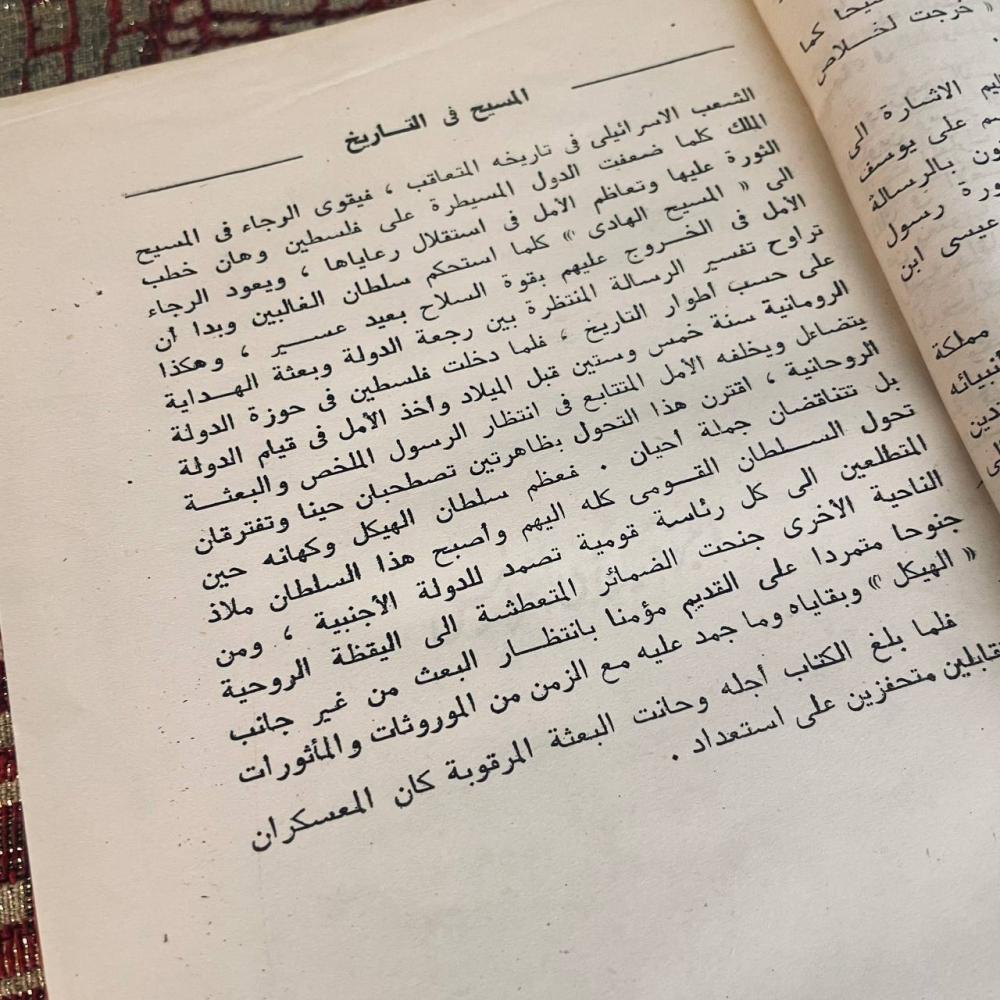 المسيح فى التـــاريخ
الشعب الاسرائيلى فى تاريخه المتعاقب ، فيقوى الرجاء فى المسيح
الملك كلما ضعفت الدول المسيطرة على فلسطين وهان خطب
الثورة عليها وتعاظم الأمل فى استقلال رعاياها ، ويعود الرجاء
الى « المسيح الهادى » كلما استحكم سلطان الغالبين وبدا أن
الأمل فى الخـــروج عليهم بقوة السلاح بعيد عســـير ، وهكذا
تراوح تفسير الرسالة المنتظرة بين رجعة الدولة وبعثة الهـــداية
على حسب أطوار التاريخ ، فلما دخلت فلسطين فى حوزة الدولة
الرومانية سنة خمس وستين قبل الميلاد وأخذ الأمل فى قيام الدولة
يتضاءل ويخلفه الأمل المتتابع فى انتظار الرسول الملخص والبعثــة
الروحانية ، اقترن هذا التحول بظاهرتين تصطحبان حينا وتفترقان
بل تتناقضان جملة أحيان . فعظم سلطان الهيكل وكهانه حين
تحول الســلطان القــومى كله اليهم وأصبح هذا السلطان ملاذ
المتطلعين الى كل رئاسة قومية تصمد للدولة الأجنبية ، ومن
الناحية الأخرى جنحت الضمائر المتعطشة الى اليقظة الروحية
جنوحا متمردا على القديم مؤمنا بانتظـــار البعث من غير جانب
« الهيكل » وبقاياه وما جمد عليه مع الزمن من الموروثات والمأثورات
فلما بلغ الكتاب أجله وحانت البعثة المرقوبة كان المعسكران
تقابلين متحفزين على استعداد .
كما
« خرجت لخــلاص
الاشارة الى
على يوسف
بالرسالة
رسول
عيسى ابن
مملكة